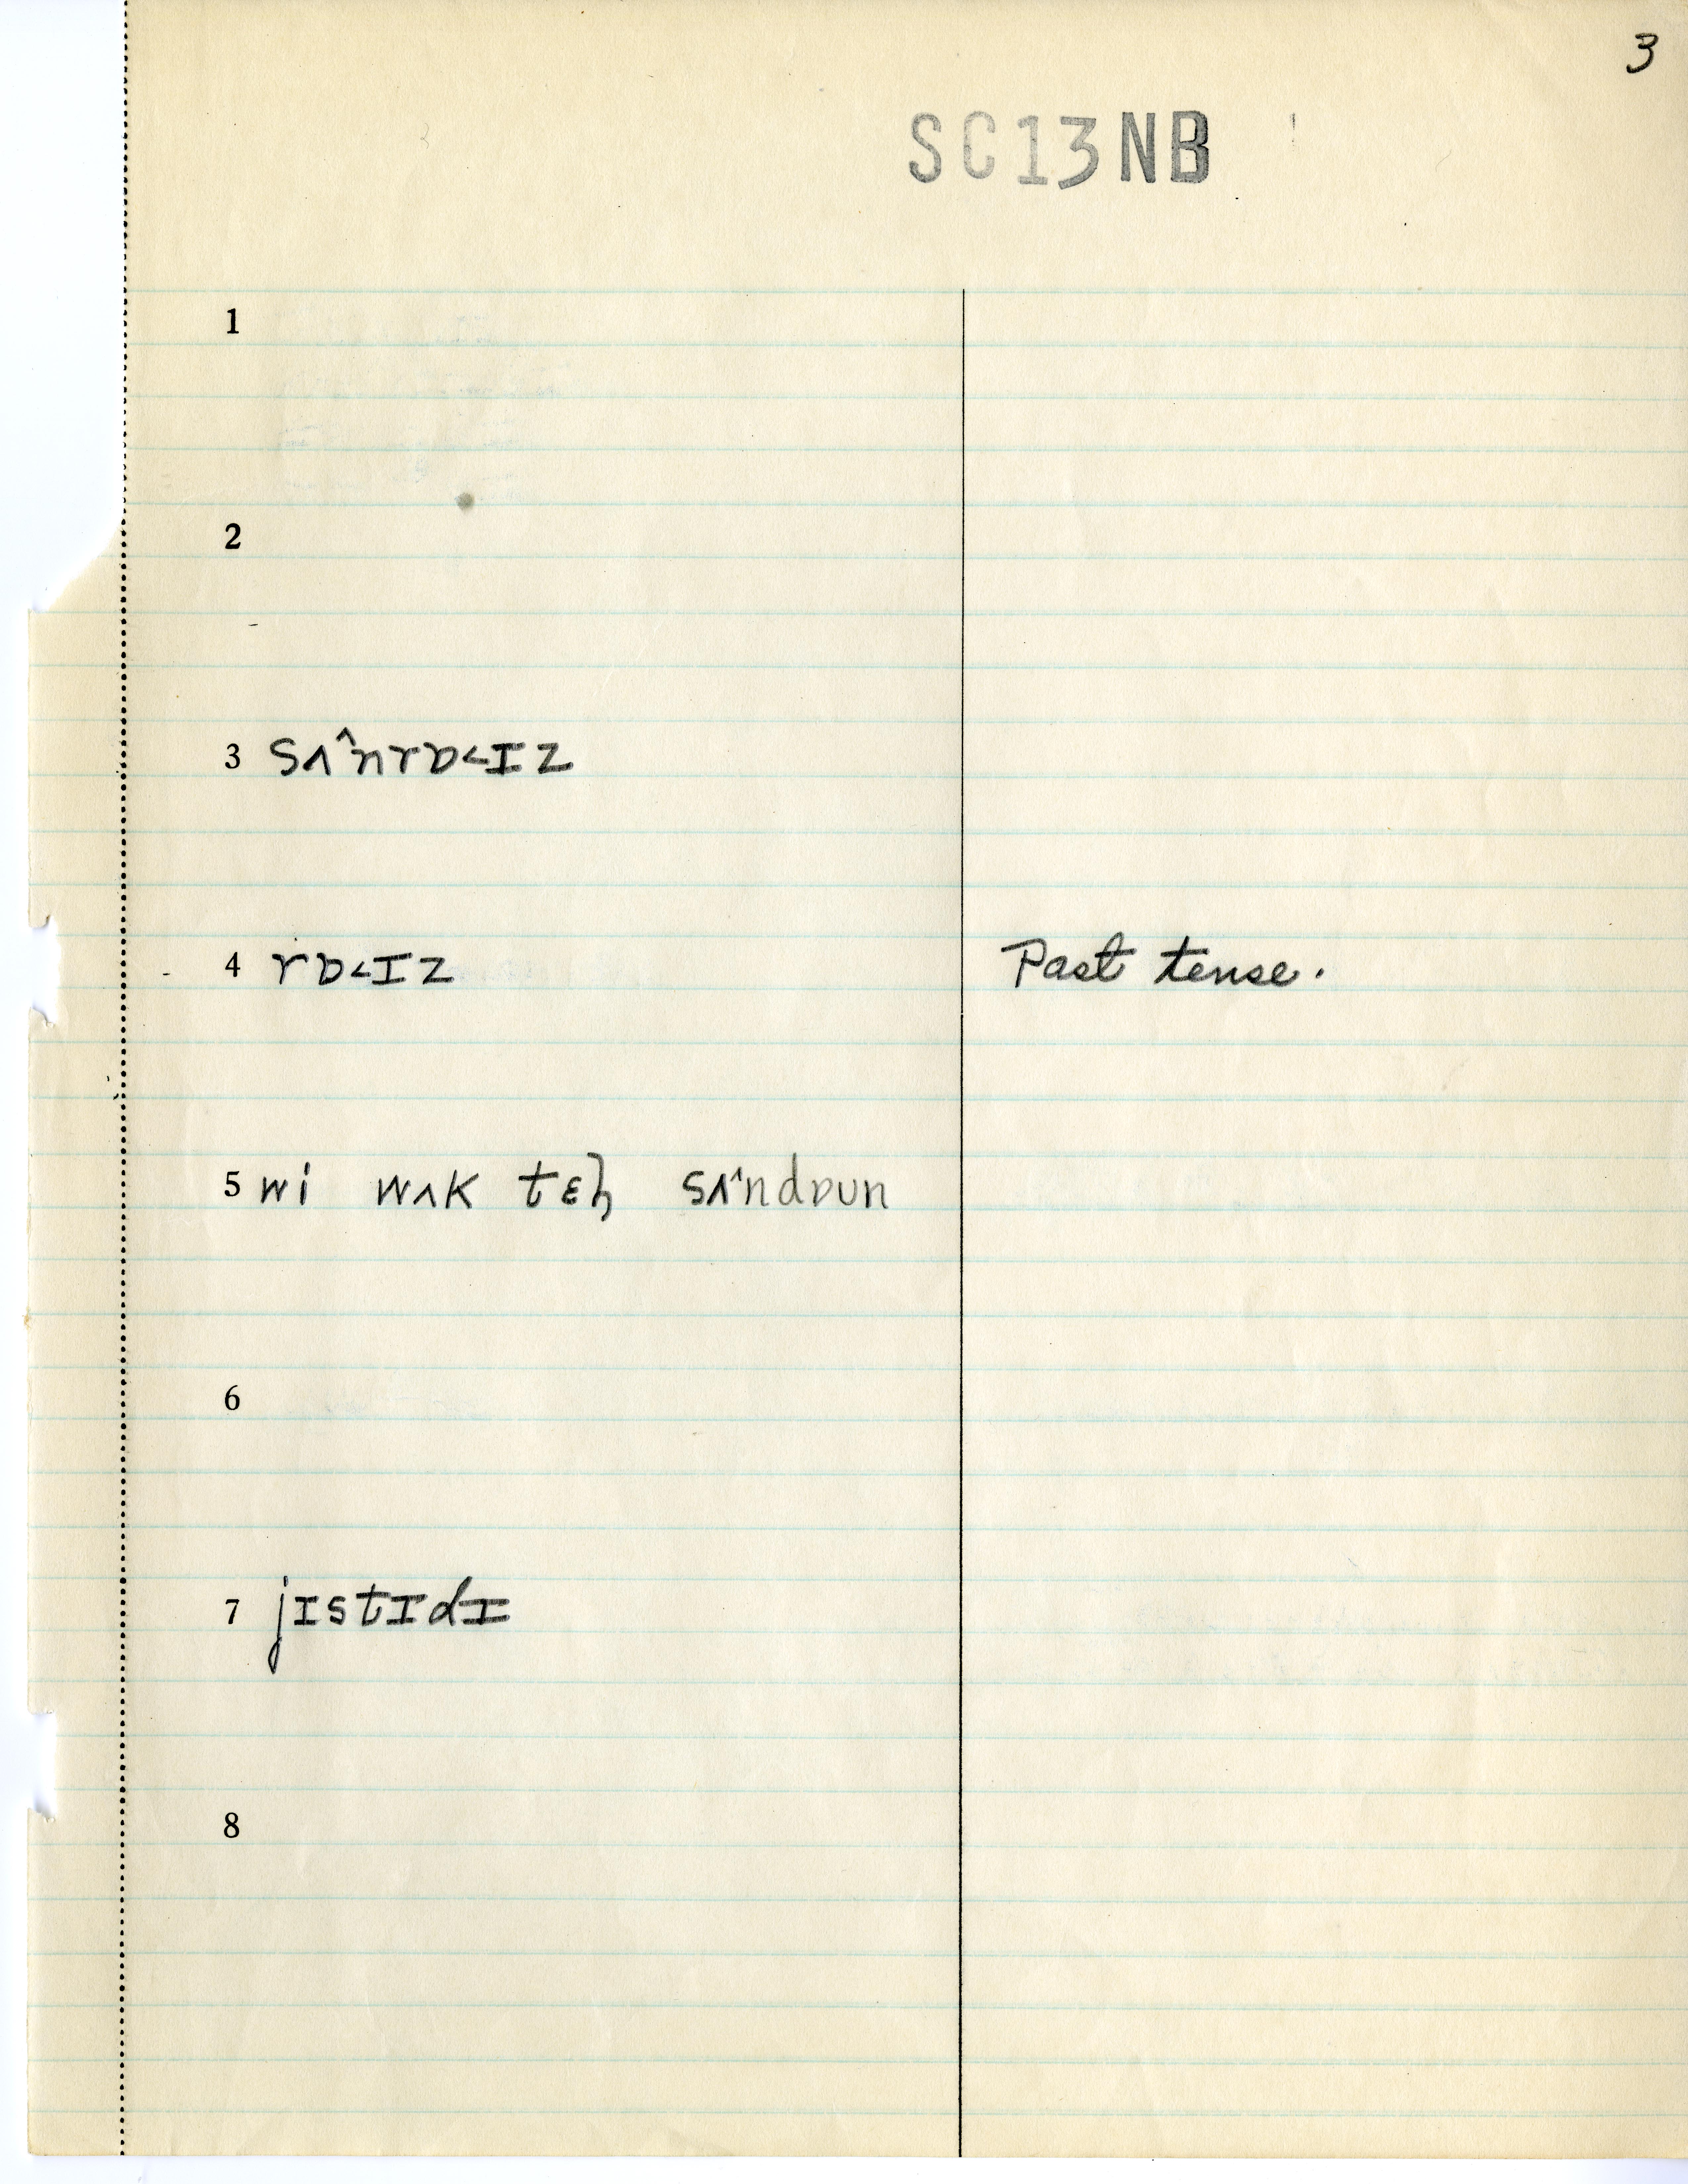 3
SC13NB
1
2
3 sʌ^nrɒ˂ɪz
4 rɒ˂ɪz Past tense.
5 wi wʌk tɛlˌ sʌ^ndɒun
6
7 jɪstɪdɪ
8